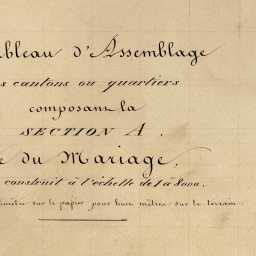 bleau d'Assemblage
s cantons ou quartiers
composans la
SECTION A.
du Mariage,
construit à l'échelle de 1 à 8000.
sur le papier pour huit mètres sur le terrain